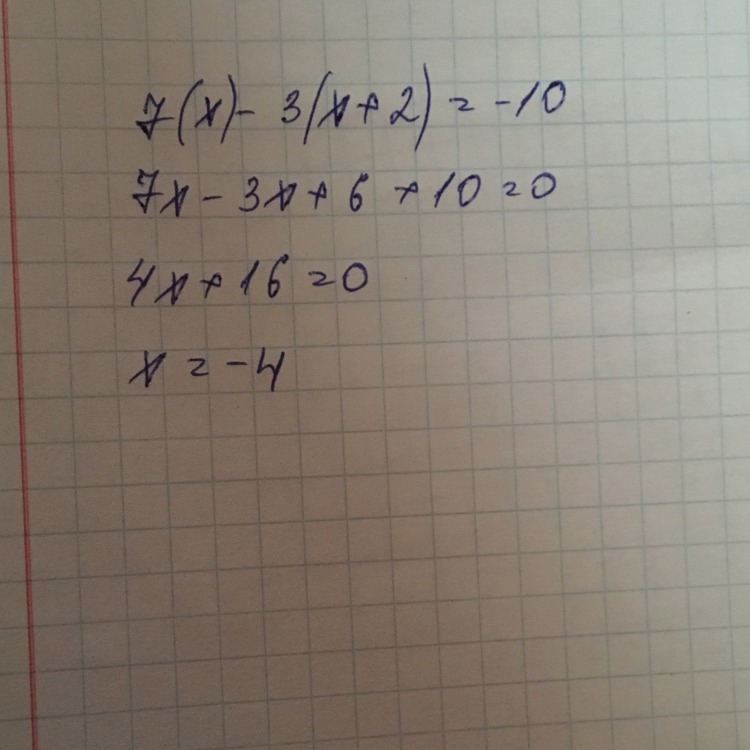 7(x) - 3(x+2) = -10
7x - 3x + 6 + 10 = 0
4x + 16 = 0
x = -4